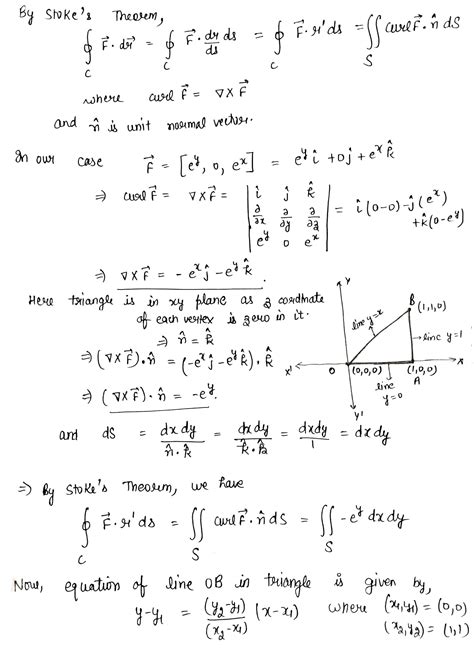 By Stoke's Theorem,
∮_C F⃗·dr⃗ = ∮_C F⃗·dr/ds ds = ∮_C F⃗·r'ds = ∬_S curl F⃗·n̂ dS
where curl F⃗ = ∇×F⃗
and n̂ is unit normal vector.
In our case F⃗ = [e^y, 0, e^x] = e^y î + 0ĵ + e^x k̂
⇒ curl F⃗ = ∇×F⃗ = | î ĵ k̂ |
| ∂/∂x ∂/∂y ∂/∂z |
| e^y 0 e^x | = î(0-0)-ĵ(e^x)
+k̂(0-e^y)
⇒ ∇×F⃗ = -e^x ĵ - e^y k̂
Here triangle is in xy plane as z coordinate
of each vertex is zero in it.
⇒ n̂ = k̂
⇒ (∇×F⃗)·n̂ = (-e^x ĵ - e^y k̂)·k̂
⇒ (∇×F⃗)·n̂ = -e^y.
Y
B (1,1,0)
line y=x
line y=1
X'
O
(0,0,0)
(1,0,0)
X
A
line
y=0
Y'
and dS = dxdy/(n̂·k̂) = dxdy/(k̂·k̂) = dxdy/1 = dxdy
⇒ By Stoke's Theorem, we have
∮_C F⃗·r'ds = ∬_S curl F⃗·n̂ dS = ∬_S -e^y dxdy
Now, equation of line OB in triangle is given by,
y-y₁ = (y₂-y₁)/(x₂-x₁) (x-x₁) where (x₁,y₁) = (0,0)
(x₂,y₂) = (1,1)